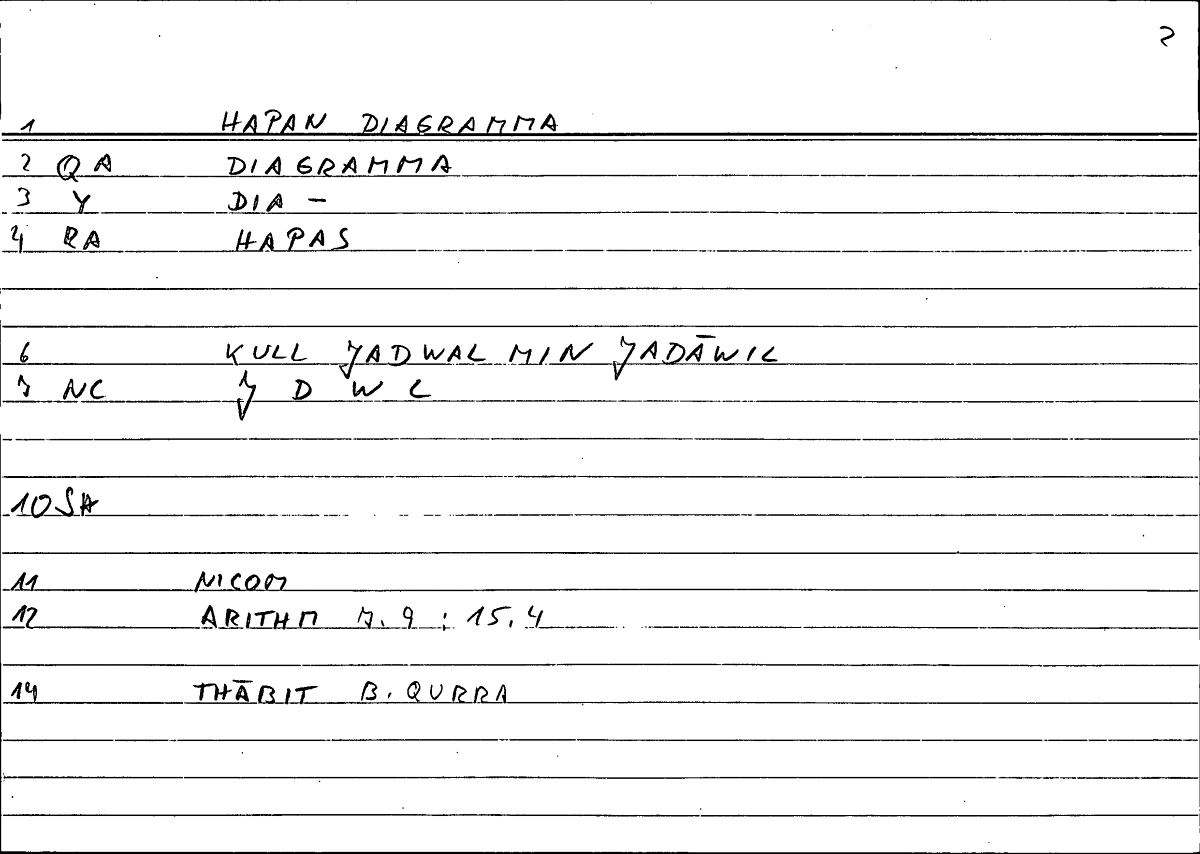 2
1 HAPAN DIAGRAMMA
2 QA DIAGRAMMA
3 Y DIA –
4 RA HAPAS
6 KULL JADWAL MIN JADĀWIL
7 NC J D W L
10 SA
11 NICOM
12 ARITHM 7.9 ; 15.4
14 THĀBIT B. QURRA